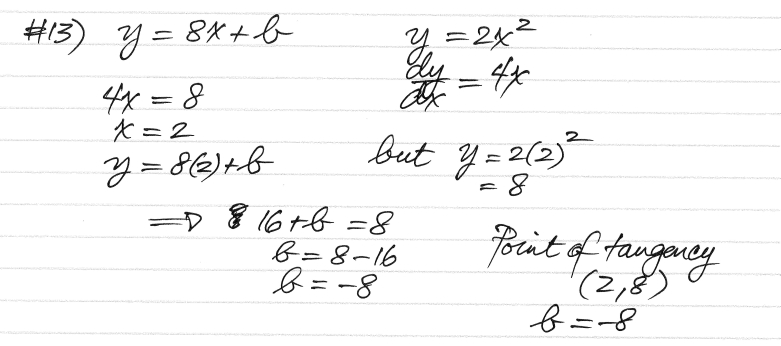 #13) y = 8x + b
y = 2x²
dy/dx = 4x
4x = 8
x = 2
y = 8(2) + b
but y = 2(2)²
= 8
⇒ 16 + b = 8
b = 8 - 16
b = -8
Point of tangency
(2,8)
b = -8